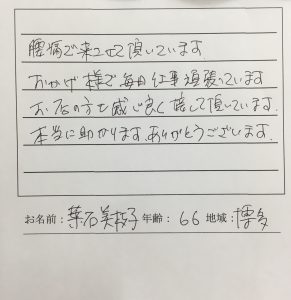 腰痛で来させて頂いています
おかげ様で毎日仕事頑張っています
お店の方も感じ良く接して頂いています.
本当に助かります.ありがとうございます.
お名前:葉石美枝子 年齢: 66 地域:博多